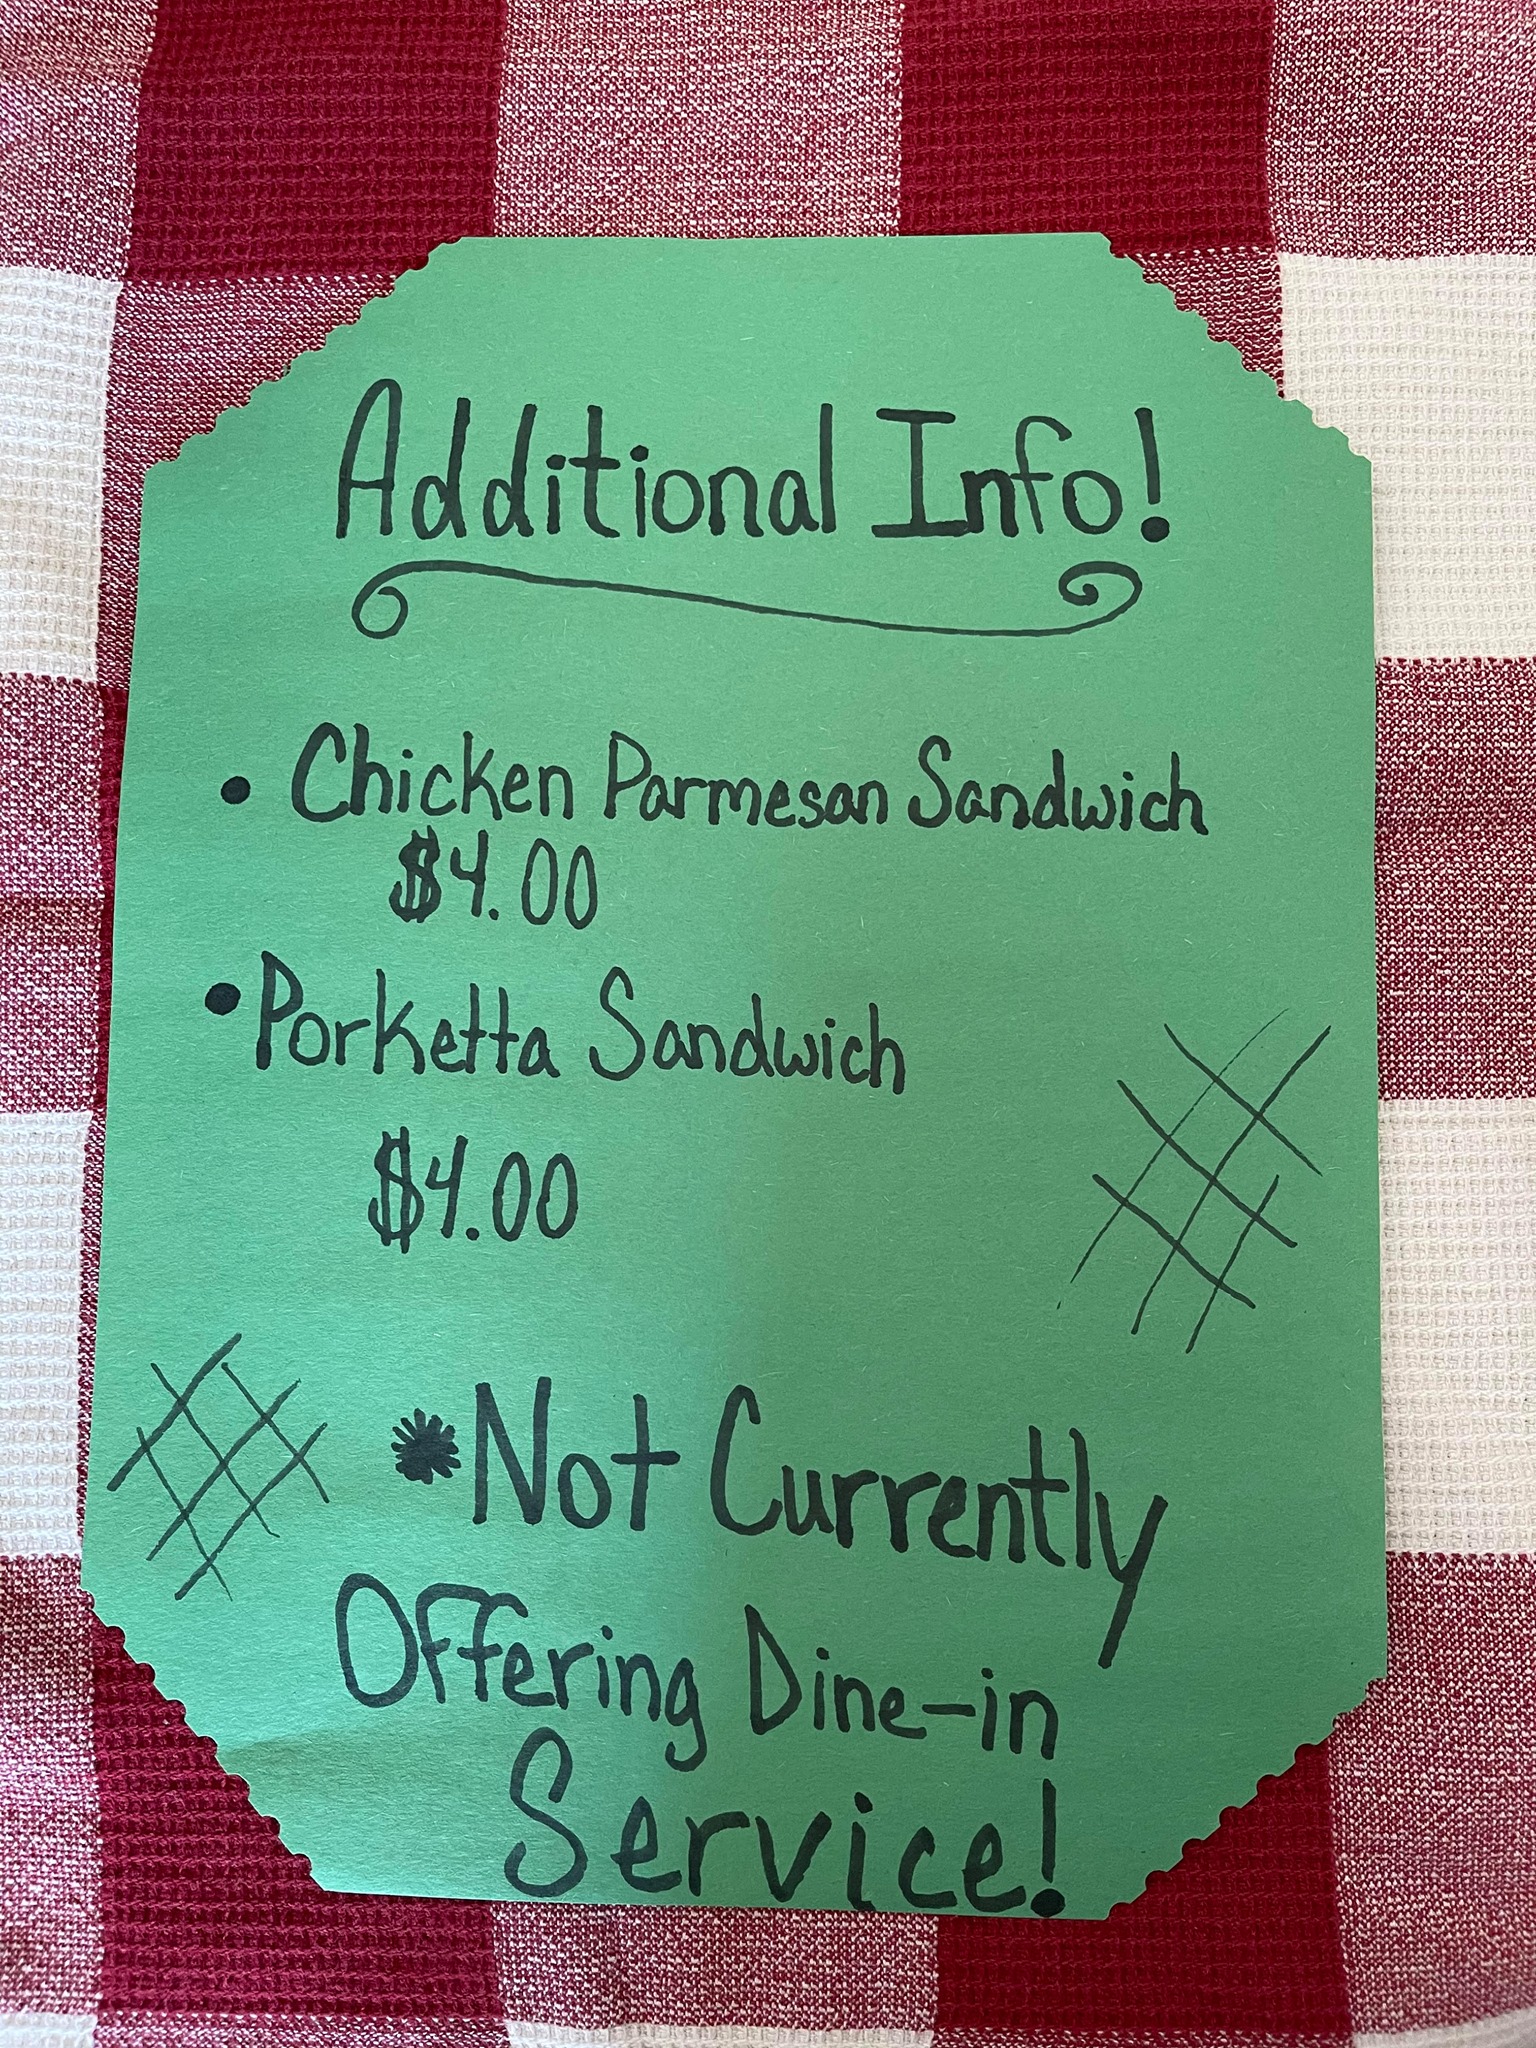 Additional Info!
• Chicken Parmesan Sandwich
$4.00
• Porketta Sandwich
$4.00
*Not Currently
Offering Dine-in
Service!